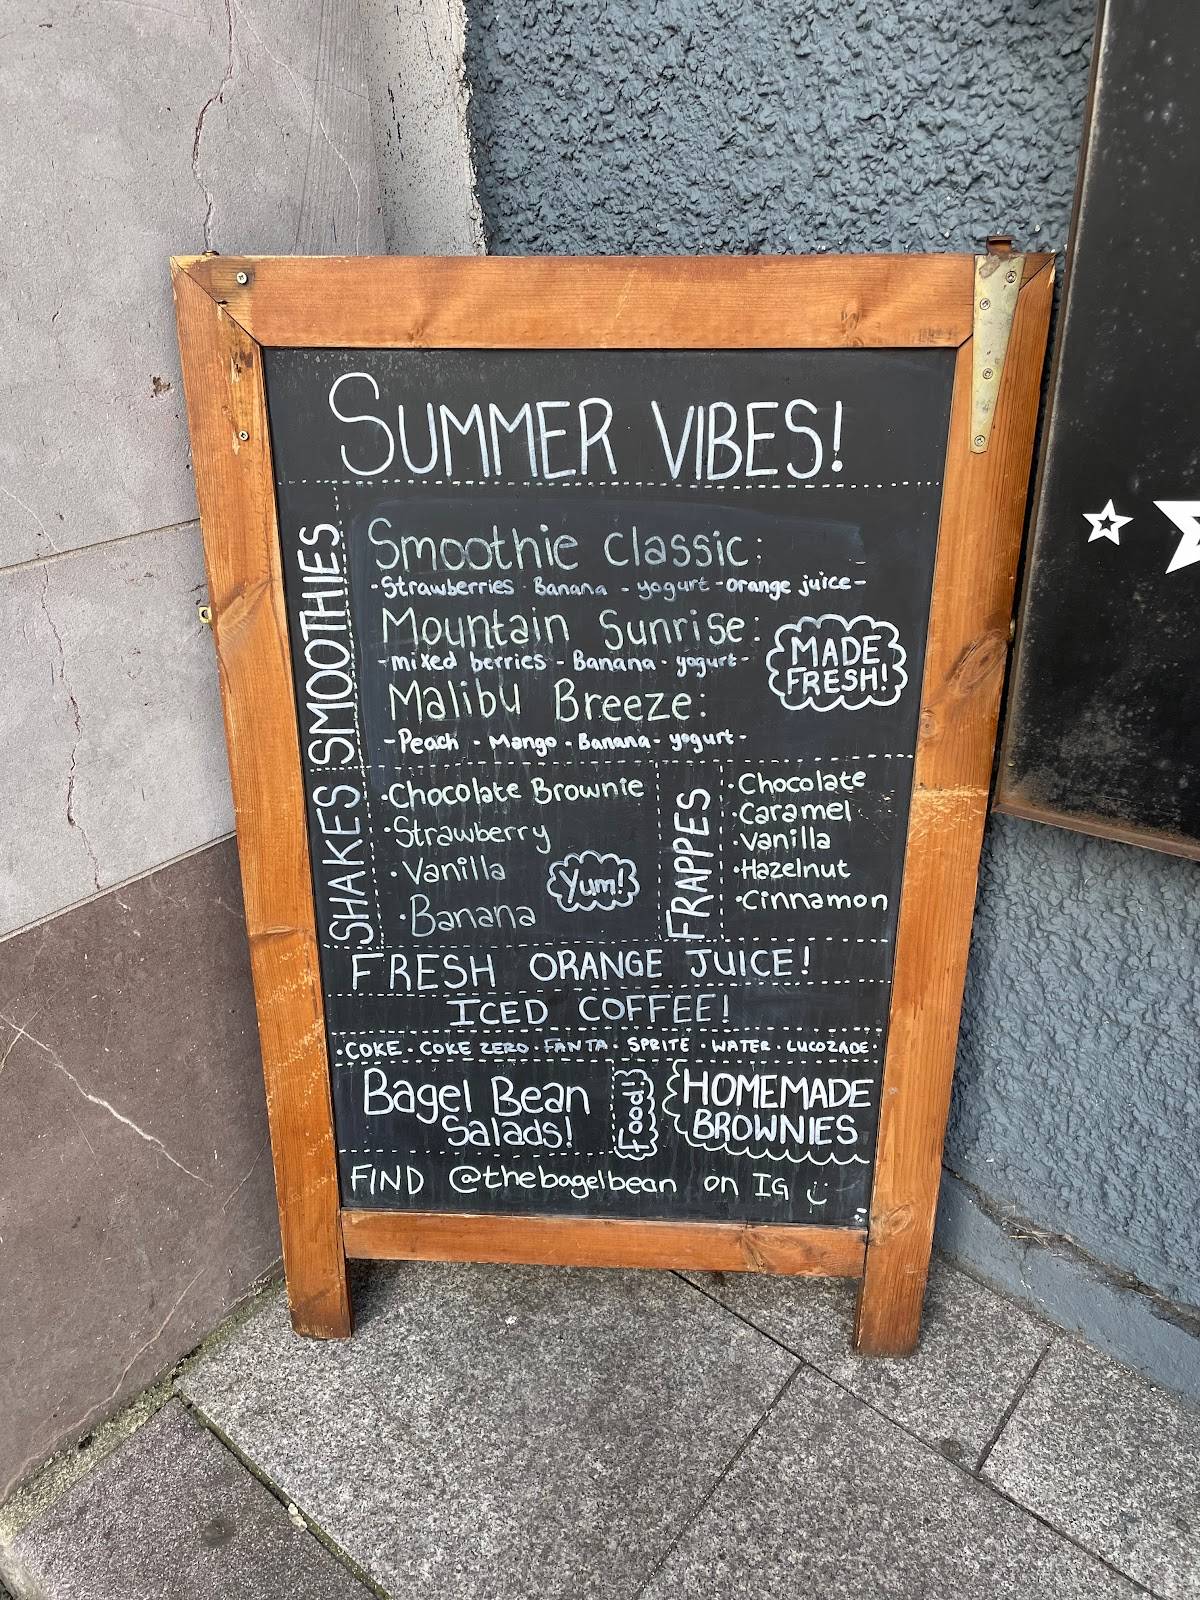 SUMMER VIBES!
SMOOTHIES
Smoothie Classic:
-Strawberries Banana - yogurt - orange juice-
Mountain Sunrise:
-mixed berries - Banana - yogurt-
MADE
FRESH!
Malibu Breeze:
-Peach - Mango - Banana - yogurt-
SHAKES
·Chocolate Brownie
·Strawberry
·Vanilla
·Banana
Yum!
FRAPPES
·Chocolate
·Caramel
·Vanilla
·Hazelnut
·Cinnamon
FRESH ORANGE JUICE!
ICED COFFEE!
·COKE · COKE ZERO · FANTA · SPRITE · WATER · LUCOZADE·
Bagel Bean
Salads!
Food!
HOMEMADE
BROWNIES
FIND @thebagelbean on IG :)